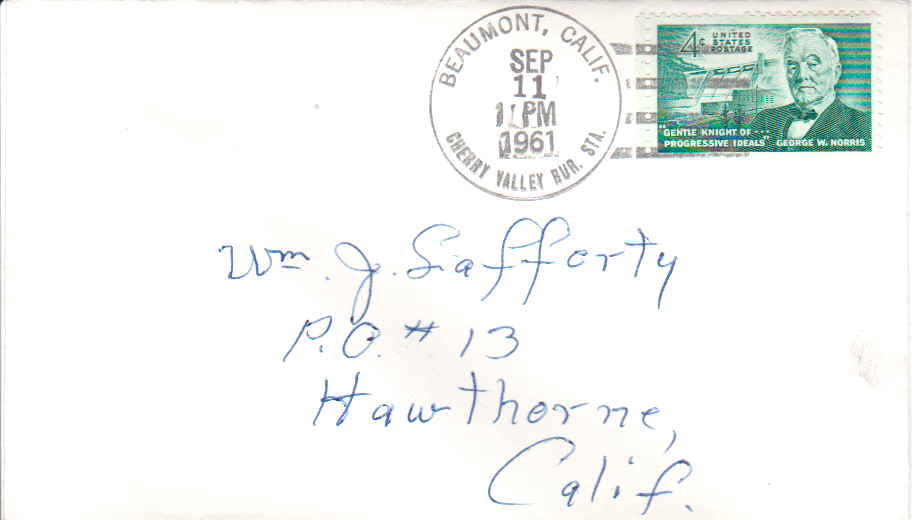 BEAUMONT, CALIF.
SEP
11
1 PM
1961
CHERRY VALLEY RUR. STA.
4¢ UNITED
STATES
POSTAGE
"GENTLE KNIGHT OF ...
PROGRESSIVE IDEALS" GEORGE W. NORRIS
Wm. J. Safferty
P.O. # 13
Hawthorne,
Calif.